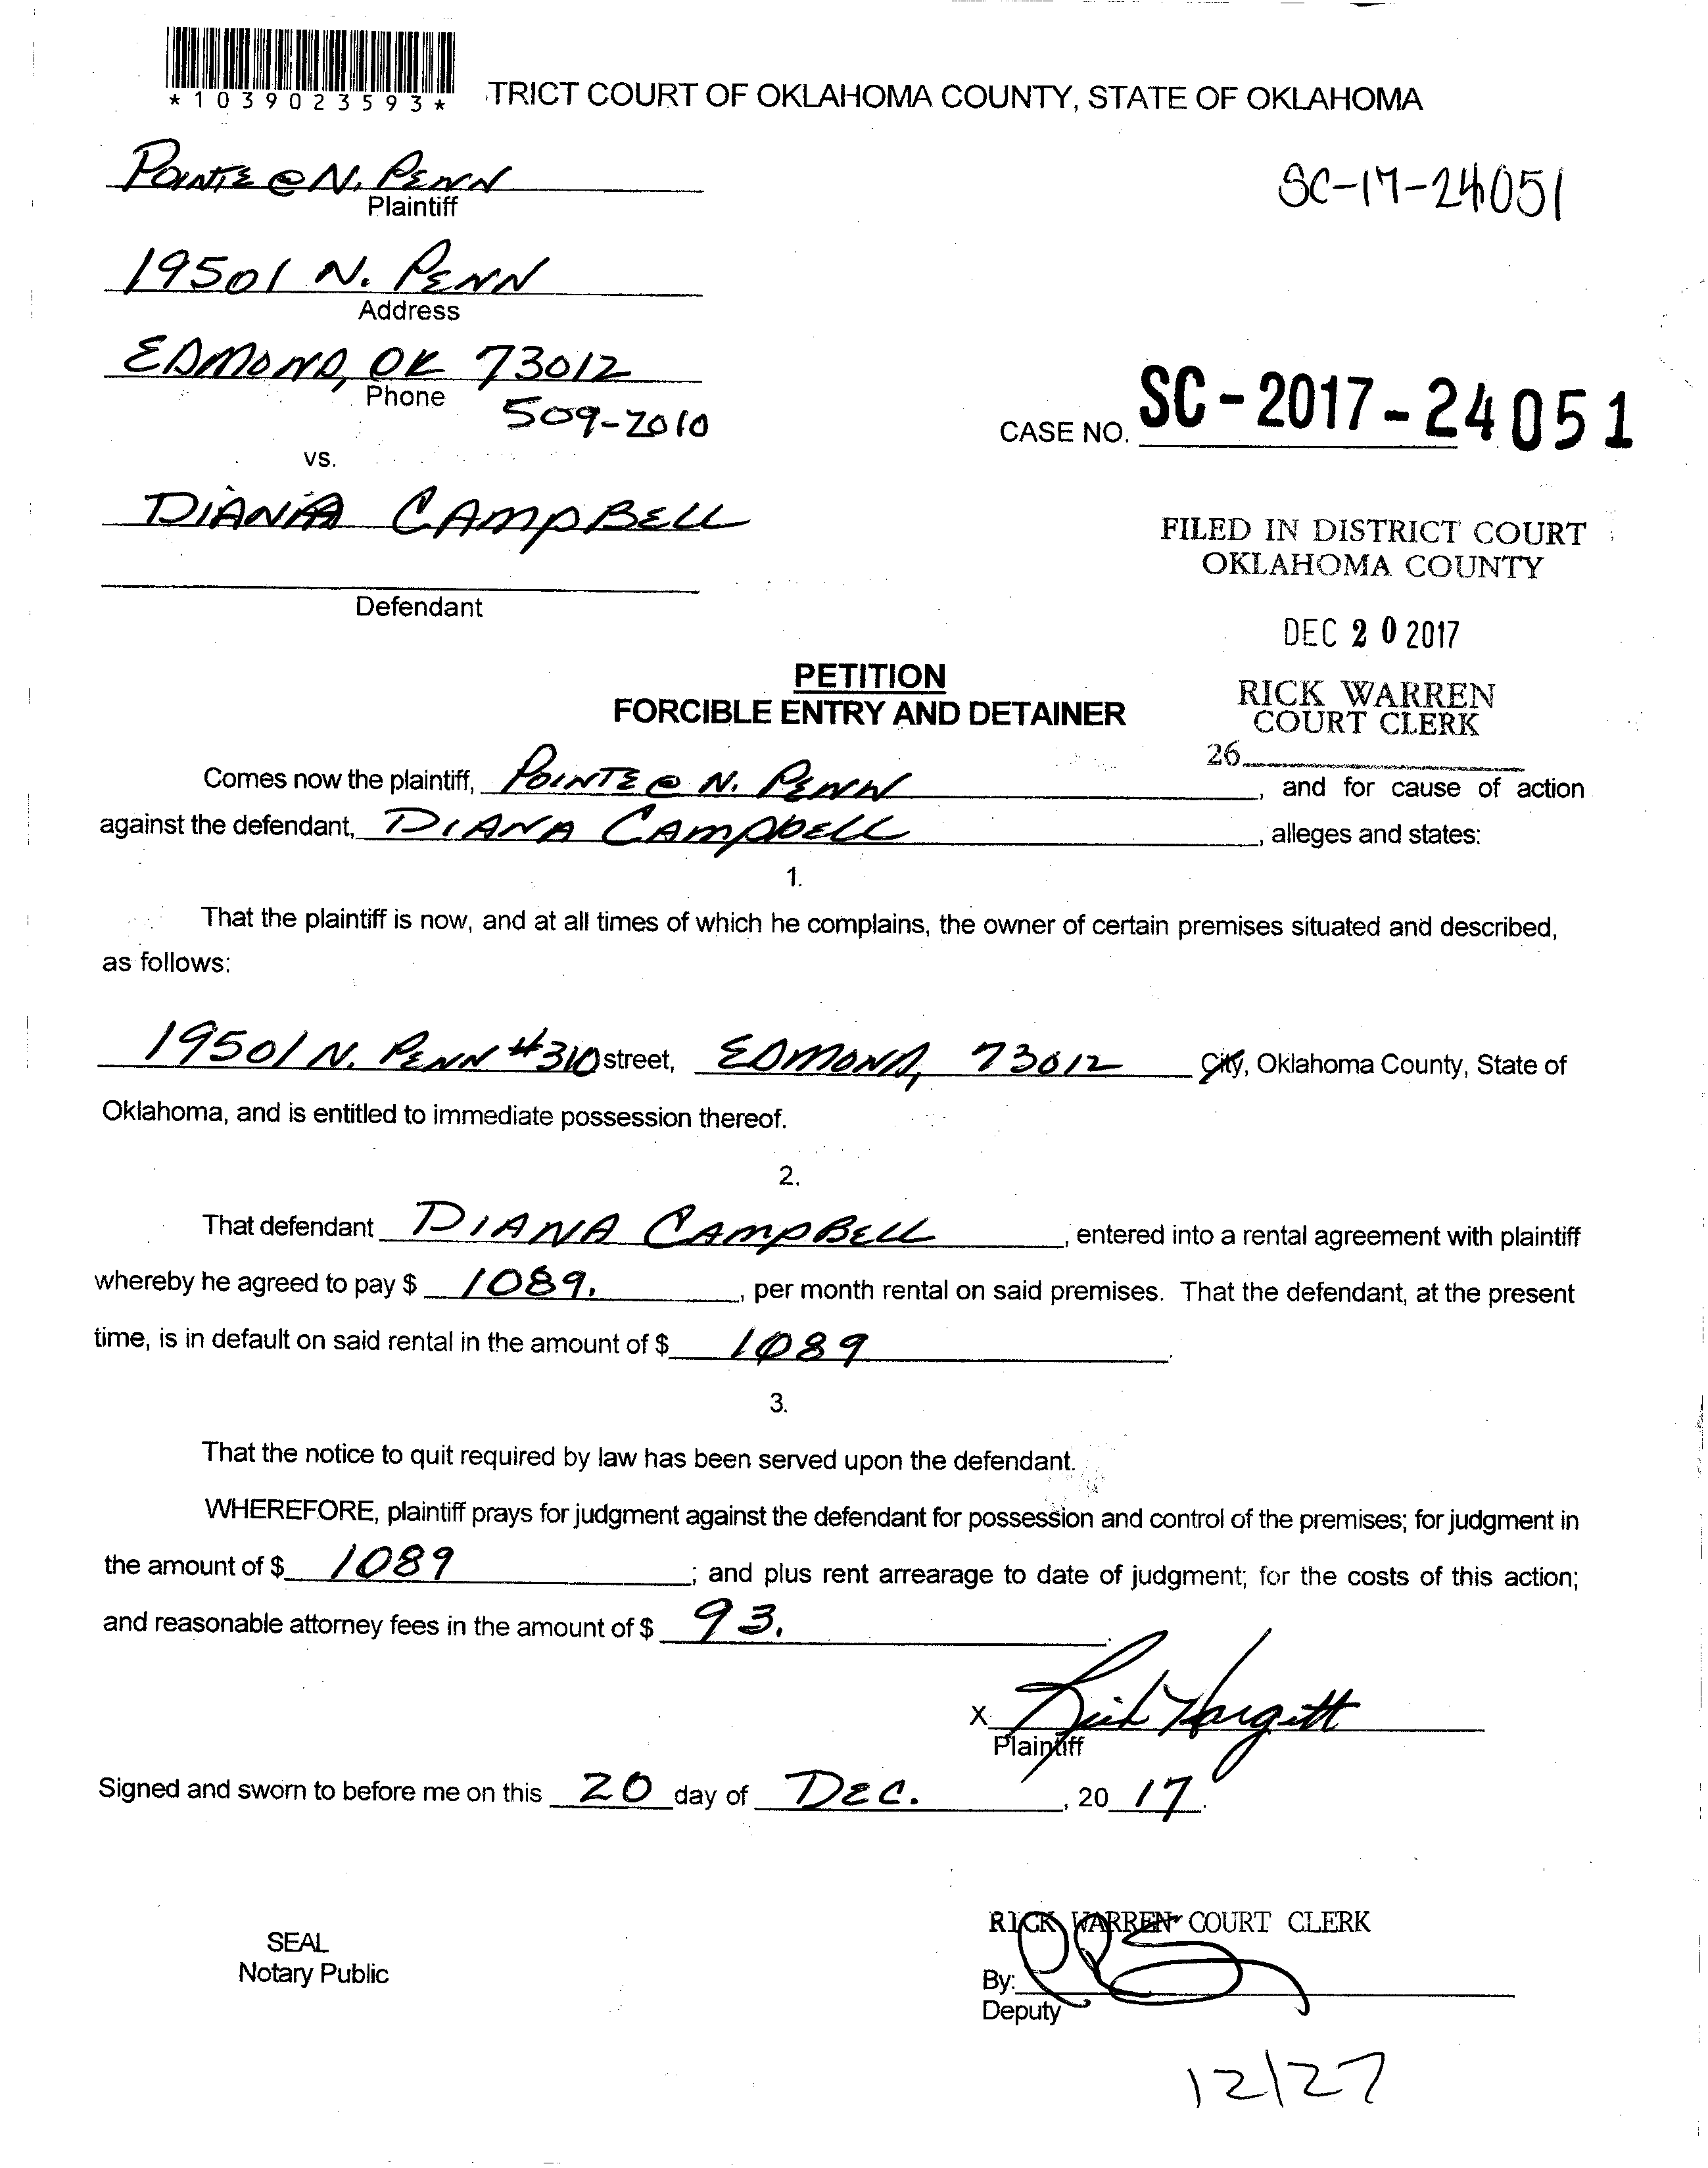 *1039023593*
TRICT COURT OF OKLAHOMA COUNTY, STATE OF OKLAHOMA
POINTE @ N. PENN
Plaintiff
SC-17-24051
19501 N. PENN
Address
EDMOND, OK 73012
Phone
509-2010
CASE NO. SC-2017-24051
vs.
DIANA CAMPBELL
Defendant
FILED IN DISTRICT COURT
OKLAHOMA COUNTY
DEC 20 2017
RICK WARREN
COURT CLERK
26
PETITION
FORCIBLE ENTRY AND DETAINER
Comes now the plaintiff, POINTE @ N. PENN, and for cause of action
against the defendant, DIANA CAMPBELL, alleges and states:
1.
That the plaintiff is now, and at all times of which he complains, the owner of certain premises situated and described,
as follows:
19501 N. PENN #310 street, EDMOND, 73012 City, Oklahoma County, State of
Oklahoma, and is entitled to immediate possession thereof.
2.
That defendant DIANA CAMPBELL, entered into a rental agreement with plaintiff
whereby he agreed to pay $ 1089., per month rental on said premises. That the defendant, at the present
time, is in default on said rental in the amount of $ 1089.
3.
That the notice to quit required by law has been served upon the defendant.
WHEREFORE, plaintiff prays for judgment against the defendant for possession and control of the premises; for judgment in
the amount of $ 1089; and plus rent arrearage to date of judgment; for the costs of this action;
and reasonable attorney fees in the amount of $ 93.
X Rick Hargett
Plaintiff
Signed and sworn to before me on this 20 day of DEC., 20 17.
SEAL
Notary Public
RICK WARREN COURT CLERK
By:
Deputy
12/27